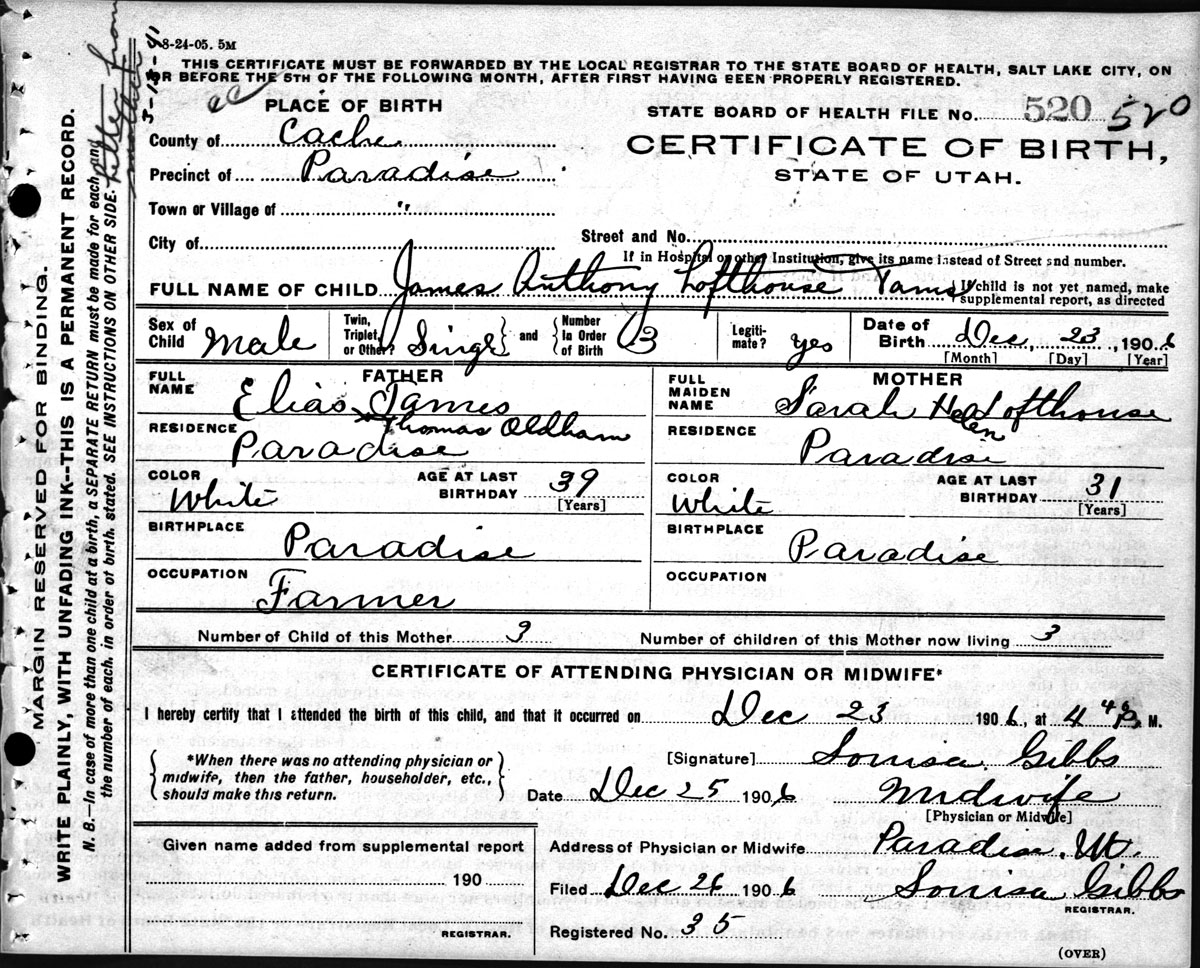 8-24-05. 5M
THIS CERTIFICATE MUST BE FORWARDED BY THE LOCAL REGISTRAR TO THE STATE BOARD OF HEALTH, SALT LAKE CITY, ON
OR BEFORE THE 5TH OF THE FOLLOWING MONTH, AFTER FIRST HAVING BEEN PROPERLY REGISTERED.
PLACE OF BIRTH
STATE BOARD OF HEALTH FILE No. 520 520
County of Cache
CERTIFICATE OF BIRTH,
Precinct of Paradise
STATE OF UTAH.
Town or Village of "
City of
Street and No.
If in Hospital or other Institution, give its name instead of Street and number.
FULL NAME OF CHILD James Anthony Lofthouse James
If child is not yet named, make
supplemental report, as directed
Sex of Child Male
Twin, Triplet, or Other? Single and Number In Order of Birth 3
Legitimate? yes
Date of Birth Dec, 23, 1906
[Month] [Day] [Year]
FATHER
FULL NAME Elias James
Thomas Oldham
RESIDENCE Paradise
COLOR White
AGE AT LAST BIRTHDAY 39
[Years]
BIRTHPLACE Paradise
OCCUPATION Farmer
MOTHER
FULL MAIDEN NAME Sarah Helen Lofthouse
RESIDENCE Paradise
COLOR White
AGE AT LAST BIRTHDAY 31
[Years]
BIRTHPLACE Paradise
OCCUPATION
Number of Child of this Mother 3 Number of children of this Mother now living 3
CERTIFICATE OF ATTENDING PHYSICIAN OR MIDWIFE*
I hereby certify that I attended the birth of this child, and that it occurred on Dec 23 1906, at 4 P. M.
*When there was no attending physician or
midwife, then the father, householder, etc.,
should make this return.
[Signature] Louisa Gibbs
Date Dec 25 1906 Midwife
[Physician or Midwife]
Given name added from supplemental report
190
REGISTRAR.
Address of Physician or Midwife Paradise, Ut.
Filed Dec 26 1906 Louisa Gibbs
REGISTRAR.
Registered No. 35
(OVER)
MARGIN RESERVED FOR BINDING.
WRITE PLAINLY, WITH UNFADING INK--THIS IS A PERMANENT RECORD.
N. B.—In case of more than one child at a birth, a SEPARATE RETURN must be made for each, and
the number of each, in order of birth, stated. SEE INSTRUCTIONS ON OTHER SIDE.
letter from
mother